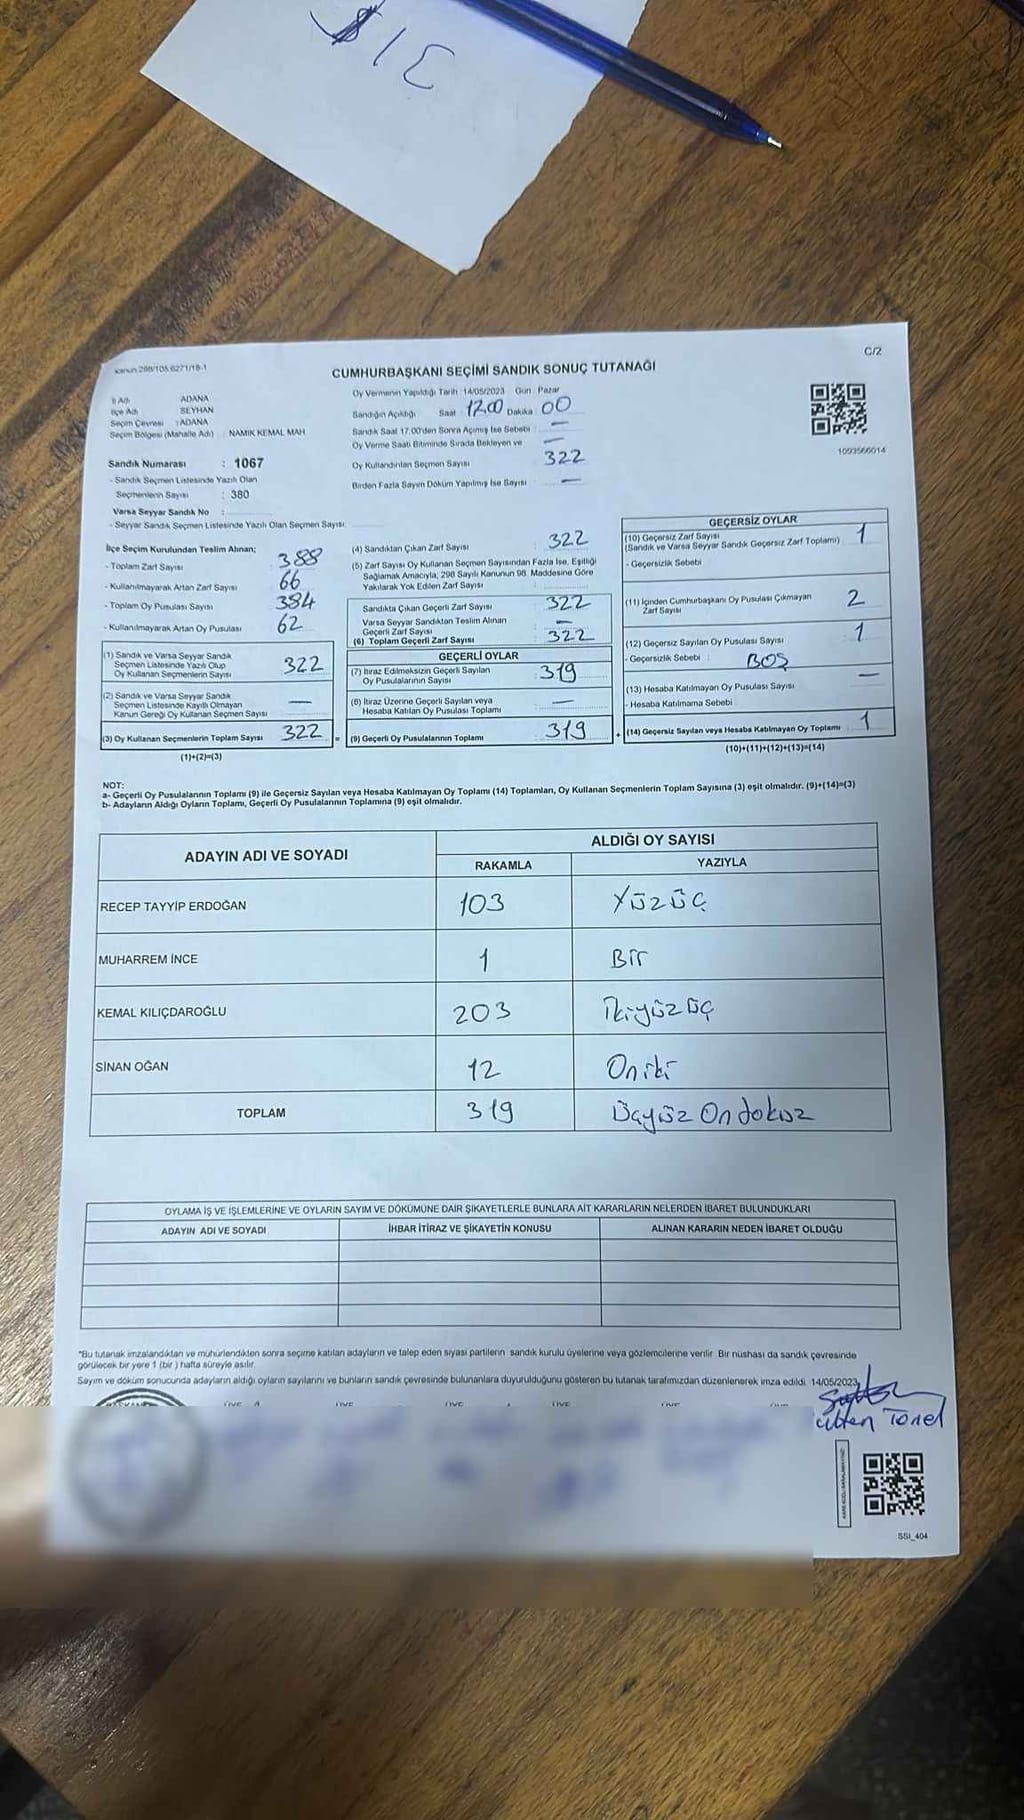 31
C/2
CUMHURBAŞKANI SEÇİMİ SANDIK SONUÇ TUTANAĞI
İl Adı : ADANA
İlçe Adı SEYHAN
Seçim Çevresi : ADANA
Seçim Bölgesi (Mahalle Adı) : NAMIK KEMAL MAH
Sandık Numarası : 1067
- Sandık Seçmen Listesinde Yazılı Olan
Seçmenlerin Sayısı : 380
Varsa Seyyar Sandık No :
- Seyyar Sandık Seçmen Listesinde Yazılı Olan Seçmen Sayısı:
Oy Vermenin Yapıldığı Tarih : 14/05/2023 Gün : Pazar
Sandığın Açıldığı Saat : 1700 Dakika : 00
Sandık Saat 17.00'den Sonra Açımış İse Sebebi : —
Oy Verme Saati Bitiminde Sırada Bekleyen ve —
Oy Kullandırılan Seçmen Sayısı 322
Birden Fazla Sayım Döküm Yapılmış İse Sayısı : —
1093566014
İlçe Seçim Kurulundan Teslim Alınan;
- Toplam Zarf Sayısı : 388
- Kullanılmayarak Artan Zarf Sayısı : 66
- Toplam Oy Pusulası Sayısı : 384
- Kullanılmayarak Artan Oy Pusulası : 62
(1) Sandık ve Varsa Seyyar Sandık
Seçmen Listesinde Yazılı Olup
Oy Kullanan Seçmenlerin Sayısı 322
(2) Sandık ve Varsa Seyyar Sandık
Seçmen Listesinde Kayıtlı Olmayan
Kanun Gereği Oy Kullanan Seçmen Sayısı —
(3) Oy Kullanan Seçmenlerin Toplam Sayısı 322
(1)+(2)=(3)
(4) Sandıktan Çıkan Zarf Sayısı : 322
(5) Zarf Sayısı Oy Kullanan Seçmen Sayısından Fazla İse, Eşitliği
Sağlamak Amacıyla, 298 Sayılı Kanunun 98. Maddesine Göre
Yakılarak Yok Edilen Zarf Sayısı :
Sandıkta Çıkan Geçerli Zarf Sayısı 322
Varsa Seyyar Sandıktan Teslim Alınan
Geçerli Zarf Sayısı —
(6) Toplam Geçerli Zarf Sayısı : 322
GEÇERLİ OYLAR
(7) İtiraz Edilmeksizin Geçerli Sayılan
Oy Pusulalarının Sayısı : 319
(8) İtiraz Üzerine Geçerli Sayılan veya
Hesaba Katılan Oy Pusulası Toplamı —
(9) Geçerli Oy Pusulalarının Toplamı 319
GEÇERSİZ OYLAR
(10) Geçersiz Zarf Sayısı
(Sandık ve Varsa Seyyar Sandık Geçersiz Zarf Toplamı) 1
- Geçersizlik Sebebi
(11) İçinden Cumhurbaşkanı Oy Pusulası Çıkmayan
Zarf Sayısı 2
(12) Geçersiz Sayılan Oy Pusulası Sayısı 1
- Geçersizlik Sebebi : BOŞ
(13) Hesaba Katılmayan Oy Pusulası Sayısı —
- Hesaba Katılmama Sebebi
(14) Geçersiz Sayılan veya Hesaba Katılmayan Oy Toplamı 1
(10)+(11)+(12)+(13)=(14)
NOT:
a- Geçerli Oy Pusulalarının Toplamı (9) ile Geçersiz Sayılan veya Hesaba Katılmayan Oy Toplamı (14) Toplamları, Oy Kullanan Seçmenlerin Toplam Sayısına (3) eşit olmalıdır. (9)+(14)=(3)
b- Adayların Aldığı Oyların Toplamı, Geçerli Oy Pusulalarının Toplamına (9) eşit olmalıdır.
ADAYIN ADI VE SOYADI
ALDIĞI OY SAYISI
RAKAMLA YAZIYLA
RECEP TAYYİP ERDOĞAN 103 Yüzüç
MUHARREM İNCE 1 Bir
KEMAL KILIÇDAROĞLU 203 İkiyüzüç
SİNAN OĞAN 12 Oniki
TOPLAM 319 Üçyüz Ondokuz
OYLAMA İŞ VE İŞLEMLERİNE VE OYLARIN SAYIM VE DÖKÜMÜNE DAİR ŞİKAYETLERLE BUNLARA AİT KARARLARIN NELERDEN İBARET BULUNDUKLARI
ADAYIN ADI VE SOYADI İHBAR İTİRAZ VE ŞİKAYETİN KONUSU ALINAN KARARIN NEDEN İBARET OLDUĞU
*Bu tutanak imzalandıktan ve mühürlendikten sonra seçime katılan adayların ve talep eden siyasi partilerin sandık kurulu üyelerine veya gözlemcilerine verilir. Bir nüshası da sandık çevresinde
görülecek bir yere 1 (bir ) hafta süreyle asılır.
Sayım ve döküm sonucunda adayların aldığı oyların sayılarını ve bunların sandık çevresinde bulunanlara duyurulduğunu gösteren bu tutanak tarafımızdan düzenlenerek imza edildi. 14/05/2023
SSI_404